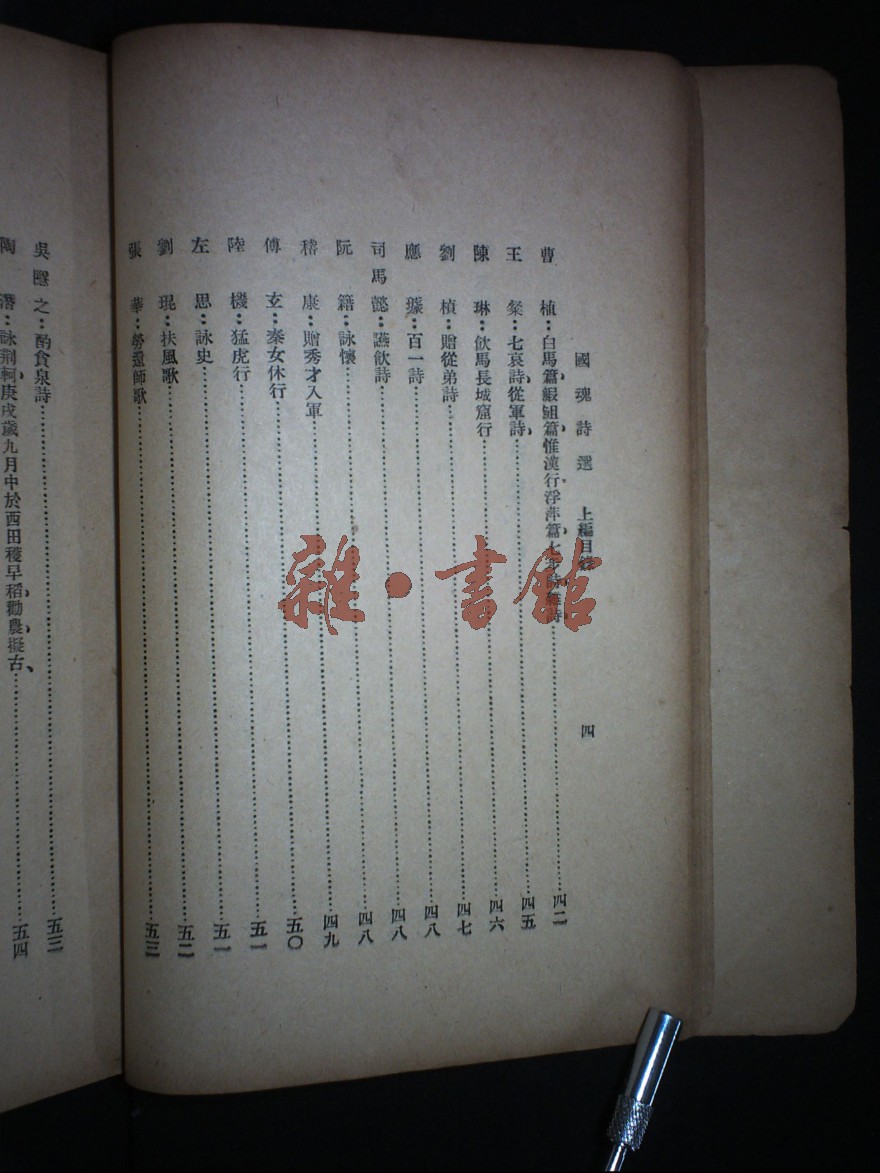 國魂詩選 上編目錄 四
曹植：白馬篇、鰕䱇篇、惟漢行、浮萍篇、七步詩、雜詩……四二
王粲：七哀詩、從軍詩……四五
陳琳：飲馬長城窟行……四六
劉楨：贈從弟詩……四七
應璩：百一詩……四八
司馬懿：讌飲詩……四八
阮籍：詠懷……四八
嵇康：贈秀才入軍……四九
傅玄：秦女休行……五〇
陸機：猛虎行……五一
左思：詠史……五一
劉琨：扶風歌……五二
張華：勞還師歌……五三
吳隱之：酌貪泉詩……五三
陶潛：詠荆軻、庚戌歲九月中於西田穫早稻、勸農、擬古、……五四
雜·書館